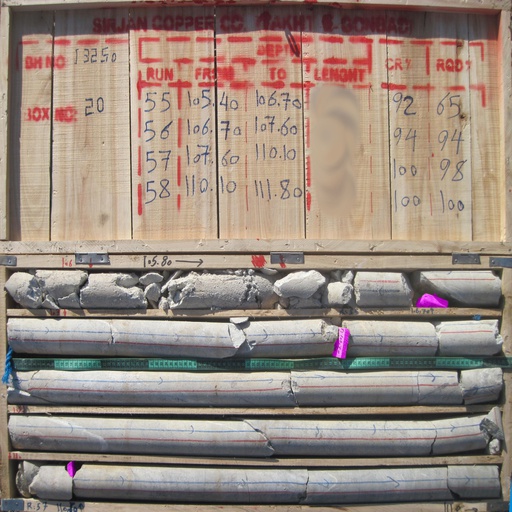 SIRJAN COPPER CO. TAKHT E GONBAD
BH NO 13250 DEPTH CR% RQD%
RUN FROM TO LENGHT
BOX NO: 20
55 105.40 106.70 92 65
56 106.70 107.60 94 94
57 107.60 110.10 100 98
58 110.10 111.80 100 100
105.80 →